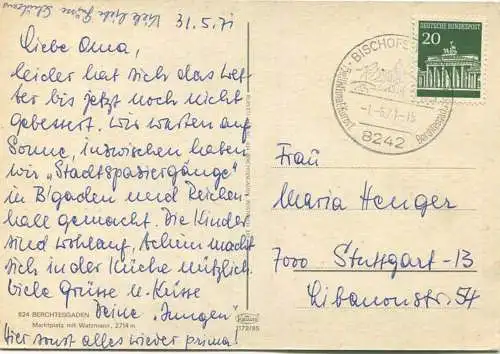 Viele liebe Grüsse
31.5.71
Liebe Oma,
leider hat sich das Wet-
ter bis jetzt noch nicht
gebessert. Wir warten auf
Sonne, inzwischen haben
wir "Stadtspaziergänge"
in B'gaden und Reichen
hall gemacht. Die Kinder
sind wohlauf, Achim macht
sich in der Küche nützlich.
Viele Grüsse u. Küsse
Deine "Jungen"
Hier sonst alles wieder prima!
824 BERCHTESGADEN
Marktplatz mit Watzmann, 2714 m
DEUTSCHE BUNDESPOST
20
BISCHOFS
-1.-6.71-15
8242
Frau
Maria Henger
7000 Stuttgart-13
Libanonstr. 54